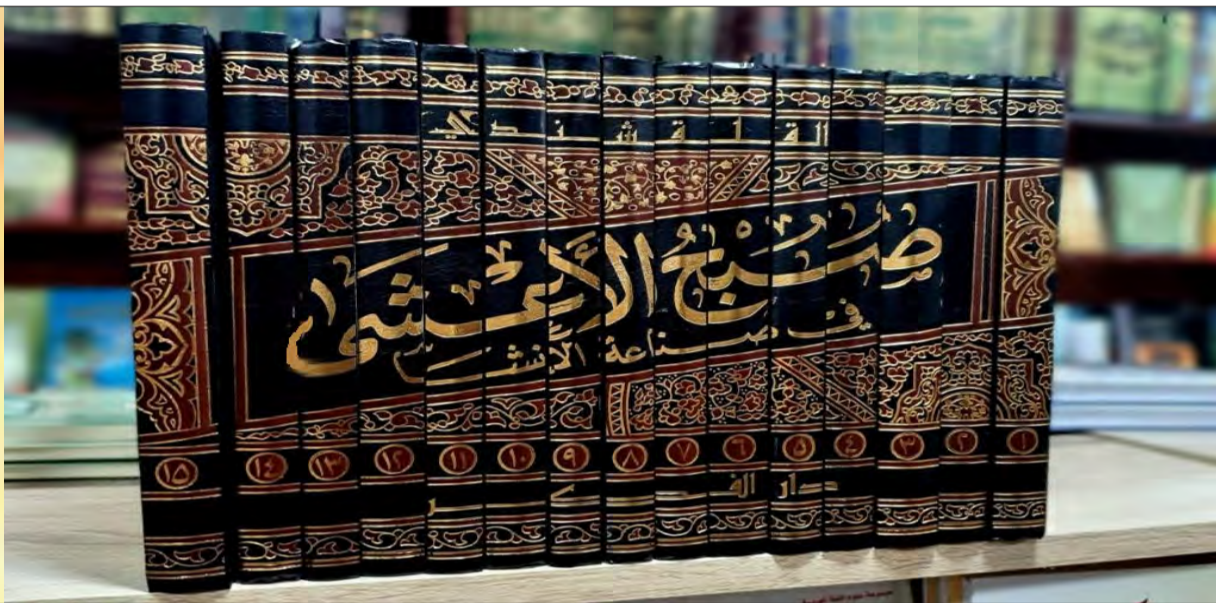 القلقشندي
صبح الأعشى
في صناعة الإنشا
١ ٢ ٣ ٤ ٥ ٦ ٧ ٨ ٩ ١٠ ١١ ١٢ ١٣ ١٤ ١٥
دار الفكر